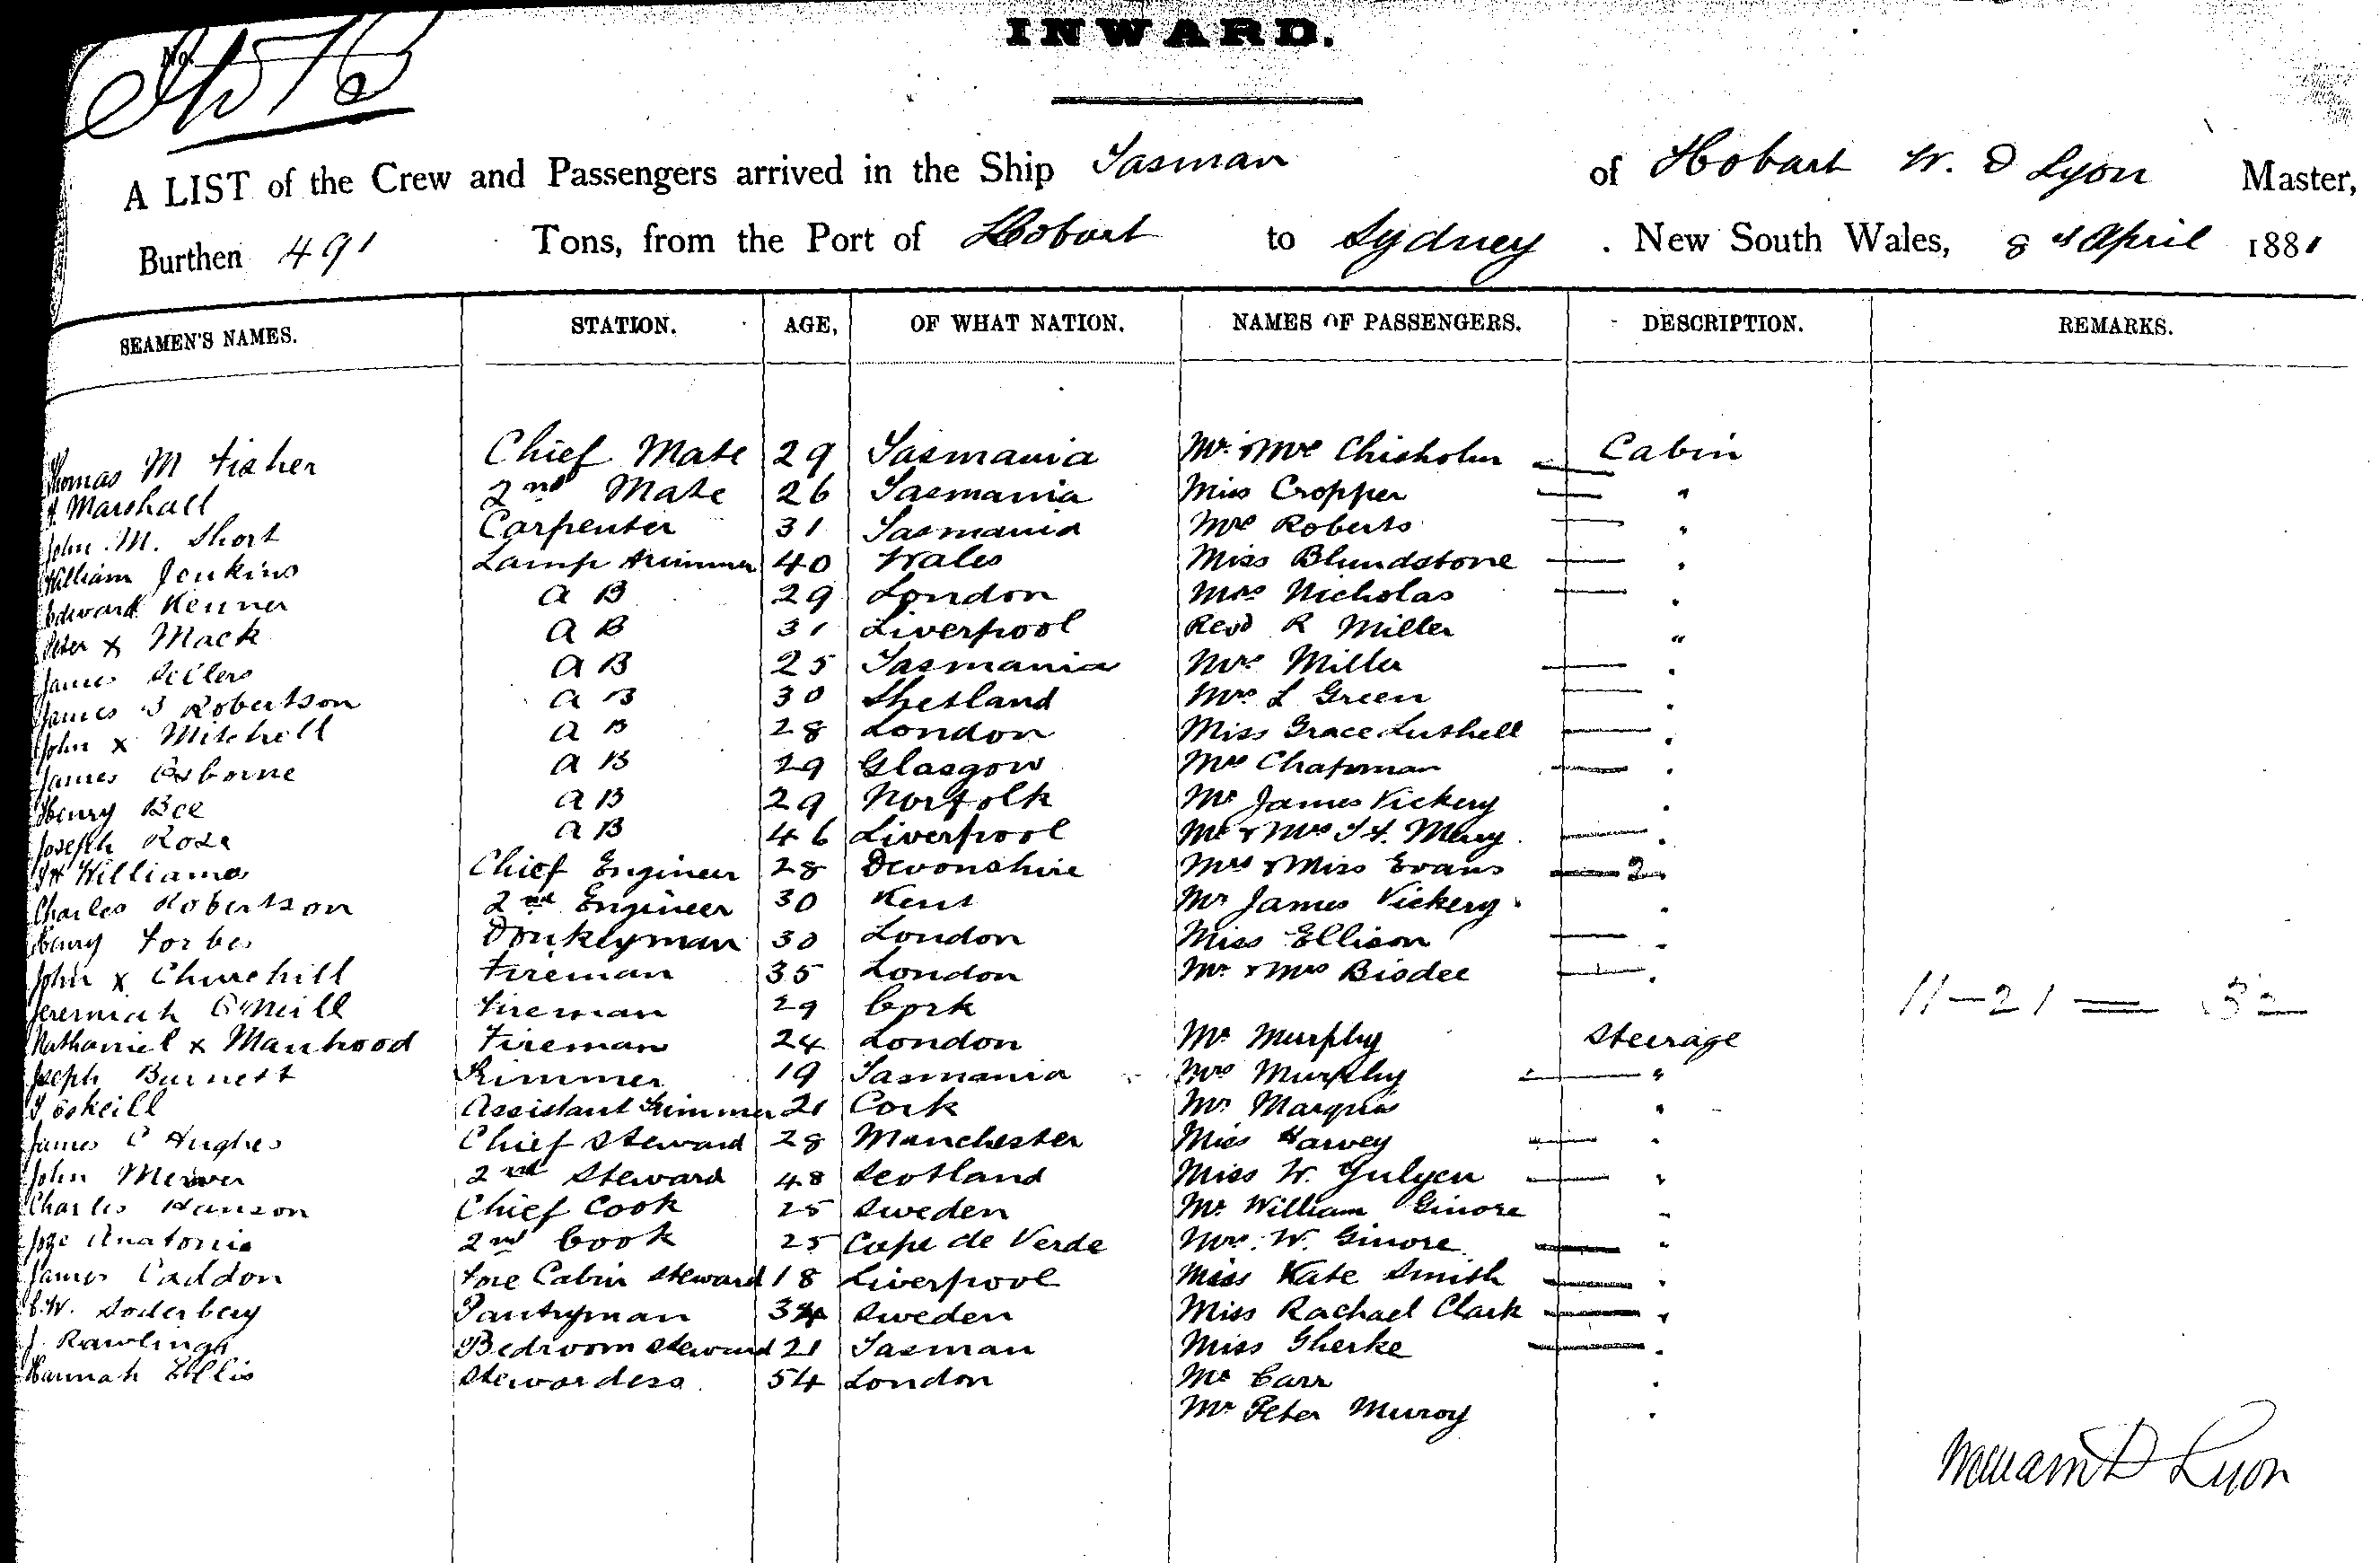 No.
INWARD.
A LIST of the Crew and Passengers arrived in the Ship Tasman of Hobart W. D Lyon Master,
Burthen 491 Tons, from the Port of Hobart to Sydney . New South Wales, 8th April 1881
SEAMEN'S NAMES. STATION. AGE, OF WHAT NATION. NAMES OF PASSENGERS. DESCRIPTION. REMARKS.
Thomas M Fisher Chief Mate 29 Tasmania Mr & Mrs Chisholm — Cabin
Marshall 2nd Mate 26 Tasmania Miss Cropper — "
John M. Short Carpenter 31 Tasmania Mrs Roberts — "
William Jenkins Lamp trimmer 40 Wales Miss Blundstone — "
Edward Kenner A B 29 London Mrs Nicholas — "
Peter x Mack A B 31 Liverpool Revd R Miller "
James Sellers A B 25 Tasmania Mrs Miller — "
James S Robertson A B 30 Shetland Mrs L Green — "
John x Mitchell A B 28 London Miss Grace Luthell — "
James Osborne A B 29 Glasgow Mrs Chapman — "
Henry Bee A B 29 Norfolk Mr James Vickery "
Joseph Rose A B 46 Liverpool Mr & Mrs — "
Williams Chief Engineer 28 Devonshire Mrs & Miss Evans — 2
Charles Robertson 2nd Engineer 30 Kent Mr James Vickery "
Henry Forbes Donkeyman 30 London Miss Ellison — "
John x Churchill Fireman 35 London Mr & Mrs Bisdee — "
Jeremiah O'Neill Fireman 29 Cork 11 — 21 = 32
Nathaniel x Manhood Fireman 24 London Mr Murphy Steerage
Joseph Burnett Trimmer 19 Tasmania Mrs Murphy — "
Assistant Trimmer 21 Cork Mr Marquis "
James C Hughes Chief Steward 28 Manchester Miss Harvey — "
John 2nd Steward 48 Scotland Miss W. — "
Charles Hanson Chief Cook 25 Sweden Mr William Ginore "
Joze Anatonio 2nd Cook 25 Cape de Verde Mrs. W. Ginore — "
James Caddon Fore Cabin Steward 18 Liverpool Miss Kate Smith — "
C.W. Soderberg Pantryman 34 Sweden Miss Rachael Clark — "
J. Rawlings Bedroom Steward 21 Tasman Miss Gherke — "
Hannah Ellis Stewardess 54 London Mr Carr "
Mr Peter Muroy "
William D Lyon